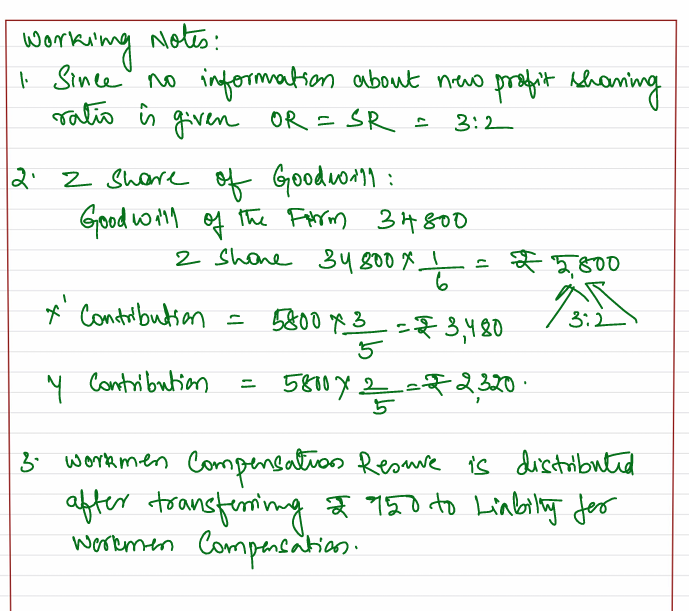 Working Notes:
1. Since no information about new profit sharing
ratio is given OR = SR = 3:2
2. Z Share of Goodwill:
Goodwill of the Firm 34800
Z Share 34800 × 1/6 = ₹ 5,800
3:2
X' Contribution = 5800 × 3/5 = ₹ 3,480
Y Contribution = 5800 × 2/5 = ₹ 2,320.
3. Workmen Compensation Reserve is distributed
after transferring ₹ 750 to Liability for
Workmen Compensation.